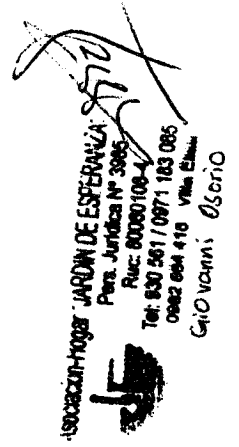 Asociación-Hogar "JARDIN DE ESPERANZA"
Pers. Jurídica Nº 3985
Ruc: 80080108-4
Tel: 930 561 / 0971 183 085
0982 884 418 Villa Elisa
Giovanni Osorio